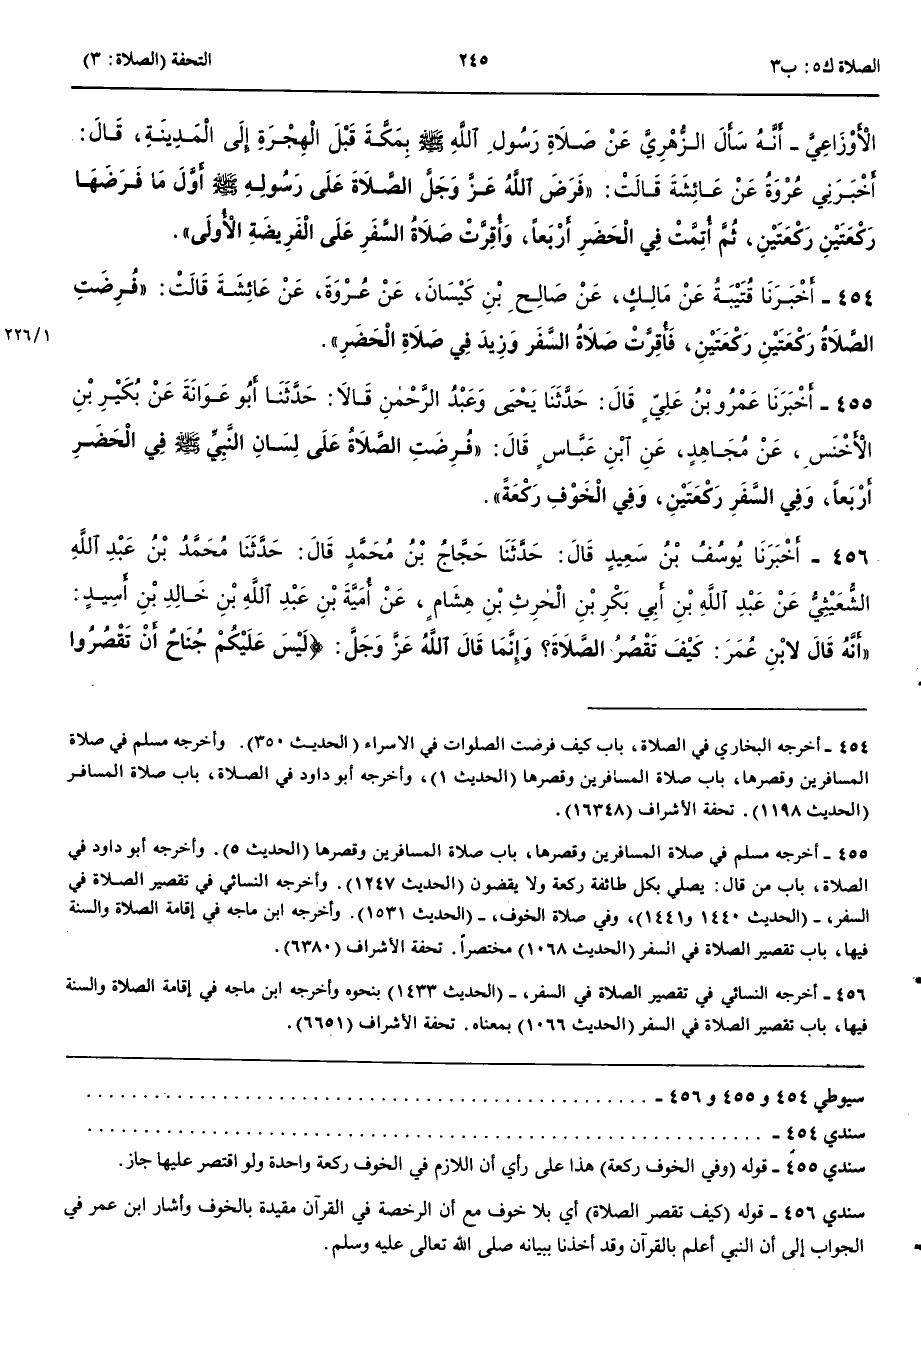 الصلاة ك٥: ب٣
٢٤٥
التحفة (الصلاة: ٣)
الْأَوْزَاعِيَّ - أَنَّهُ سَأَلَ الزُّهْرِيَّ عَنْ صَلَاةِ رَسُولِ اللَّهِ ﷺ بِمَكَّةَ قَبْلَ الْهِجْرَةِ إِلَى الْمَدِينَةِ، قَالَ:
أَخْبَرَنِي عُرْوَةُ عَنْ عَائِشَةَ قَالَتْ: «فَرَضَ اللَّهُ عَزَّ وَجَلَّ الصَّلَاةَ عَلَى رَسُولِهِ ﷺ أَوَّلَ مَا فَرَضَهَا
رَكْعَتَيْنِ رَكْعَتَيْنِ، ثُمَّ أُتِمَّتْ فِي الْحَضَرِ أَرْبَعاً، وَأُقِرَّتْ صَلَاةُ السَّفَرِ عَلَى الْفَرِيضَةِ الْأُولَى».
٤٥٤ - أَخْبَرَنَا قُتَيْبَةُ عَنْ مَالِكٍ، عَنْ صَالِحِ بْنِ كَيْسَانَ، عَنْ عُرْوَةَ، عَنْ عَائِشَةَ قَالَتْ: «فُرِضَتِ
الصَّلَاةُ رَكْعَتَيْنِ رَكْعَتَيْنِ، فَأُقِرَّتْ صَلَاةُ السَّفَرِ وَزِيدَ فِي صَلَاةِ الْحَضَرِ».
٢٢٦/١
٤٥٥ - أَخْبَرَنَا عَمْرُو بْنُ عَلِيٍّ قَالَ: حَدَّثَنَا يَحْيَى وَعَبْدُ الرَّحْمٰنِ قَالَا: حَدَّثَنَا أَبُو عَوَانَةَ عَنْ بُكَيْرِ بْنِ
الْأَخْنَسِ، عَنْ مُجَاهِدٍ، عَنِ ابْنِ عَبَّاسٍ قَالَ: «فُرِضَتِ الصَّلَاةُ عَلَى لِسَانِ النَّبِيِّ ﷺ فِي الْحَضَرِ
أَرْبَعاً، وَفِي السَّفَرِ رَكْعَتَيْنِ، وَفِي الْخَوْفِ رَكْعَةً».
٤٥٦ - أَخْبَرَنَا يُوسُفُ بْنُ سَعِيدٍ قَالَ: حَدَّثَنَا حَجَّاجُ بْنُ مُحَمَّدٍ قَالَ: حَدَّثَنَا مُحَمَّدُ بْنُ عَبْدِ اللَّهِ
الشُّعَيْثِيُّ عَنْ عَبْدِ اللَّهِ بْنِ أَبِي بَكْرِ بْنِ الْحٰرِثِ بْنِ هِشَامٍ، عَنْ أُمَيَّةَ بْنِ عَبْدِ اللَّهِ بْنِ خَالِدِ بْنِ أَسِيدٍ:
«أَنَّهُ قَالَ لابْنِ عُمَرَ: كَيْفَ تَقْصُرُ الصَّلَاةَ؟ وَإِنَّمَا قَالَ اللَّهُ عَزَّ وَجَلَّ: ﴿لَيْسَ عَلَيْكُمْ جُنَاحٌ أَنْ تَقْصُرُوا
٤٥٤ - أخرجه البخاري في الصلاة، باب كيف فرضت الصلوات في الاسراء (الحديث ٣٥٠). وأخرجه مسلم في صلاة
المسافرين وقصرها، باب صلاة المسافرين وقصرها (الحديث ١)، وأخرجه أبو داود في الصلاة، باب صلاة المسافر
(الحديث ١١٩٨). تحفة الأشراف (١٦٣٤٨).
٤٥٥ - أخرجه مسلم في صلاة المسافرين وقصرها، باب صلاة المسافرين وقصرها (الحديث ٥). وأخرجه أبو داود في
الصلاة، باب من قال: يصلي بكل طائفة ركعة ولا يقضون (الحديث ١٢٤٧). وأخرجه النسائي في تقصير الصلاة في
السفر، - (الحديث ١٤٤٠ و١٤٤١)، وفي صلاة الخوف، - (الحديث ١٥٣١). وأخرجه ابن ماجه في إقامة الصلاة والسنة
فيها، باب تقصير الصلاة في السفر (الحديث ١٠٦٨) مختصراً. تحفة الأشراف (٦٣٨٠).
٤٥٦ - أخرجه النسائي في تقصير الصلاة في السفر، - (الحديث ١٤٣٣) بنحوه وأخرجه ابن ماجه في إقامة الصلاة والسنة
فيها، باب تقصير الصلاة في السفر (الحديث ١٠٦٦) بمعناه. تحفة الأشراف (٦٦٥١).
سيوطي ٤٥٤ و ٤٥٥ و ٤٥٦ - ......................................................
سندي ٤٥٤ - ................................................................
سندي ٤٥٥ - قوله (وفي الخوف ركعة) هذا على رأي أن اللازم في الخوف ركعة واحدة ولو اقتصر عليها جاز.
سندي ٤٥٦ - قوله (كيف تقصر الصلاة) أي بلا خوف مع أن الرخصة في القرآن مقيدة بالخوف وأشار ابن عمر في
الجواب إلى أن النبي أعلم بالقرآن وقد أخذنا ببيانه صلى الله تعالى عليه وسلم.